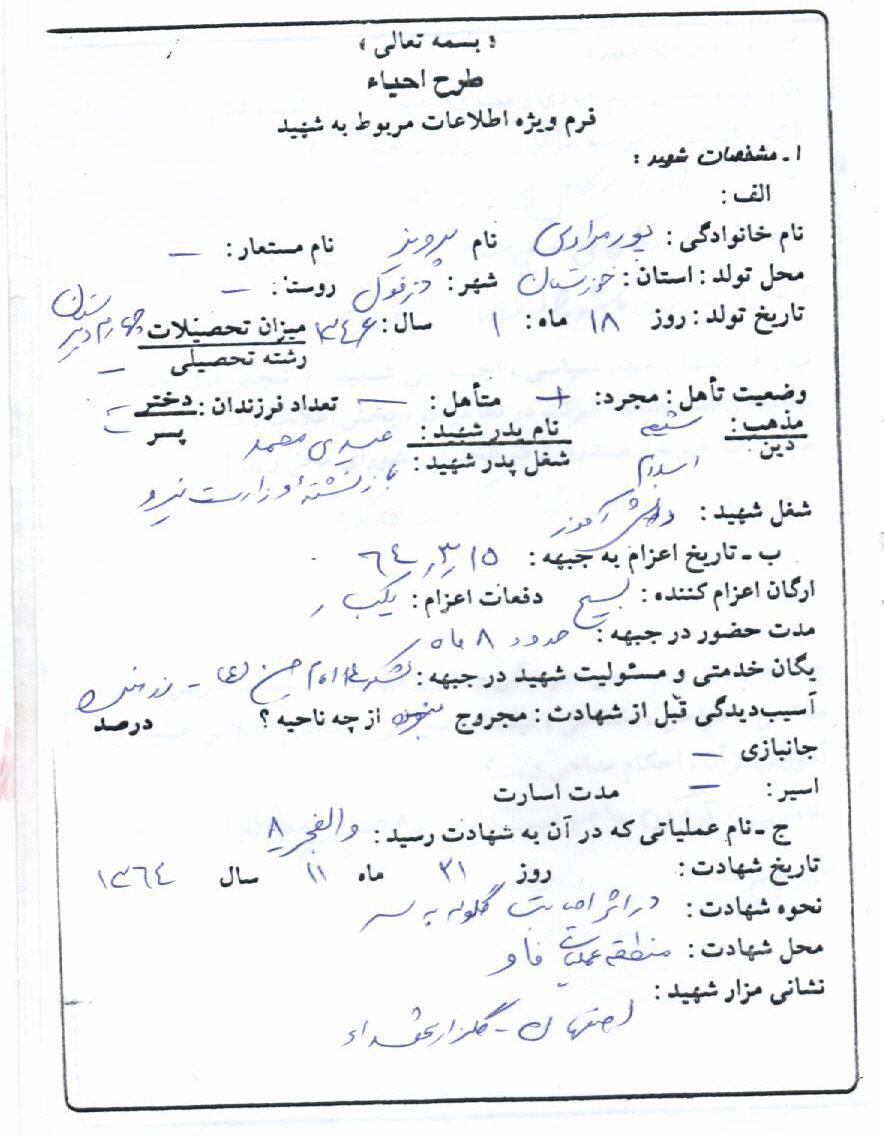 « بسمه تعالی »
طرح احیاء
فرم ویژه اطلاعات مربوط به شهید
۱ـ مشخصات شهید :
الف :
نام خانوادگی : پورمرادی نام پرویز نام مستعار : —
محل تولد : استان : خوزستان شهر : دزفول روستا : —
تاریخ تولد : روز ۱۸ ماه : ۱ سال : ۱۳۴۶ میزان تحصیلات چهارم دبیرستان
رشته تحصیلی —
وضعیت تأهل : مجرد : + متأهل : — تعداد فرزندان : دختر —
مذهب : شیعه نام پدر شهید : عیدی محمد پسر
دین اسلام شغل پدر شهید : بازنشسته وزارت نیرو
شغل شهید : دانش آموز
ب ـ تاریخ اعزام به جبهه : ۶۴٫۳٫۱۵
ارگان اعزام کننده : بسیج دفعات اعزام : یکبار
مدت حضور در جبهه : حدود ۸ ماه
یگان خدمتی و مسئولیت شهید در جبهه : لشکر ۱۴ امام حسین (ع) -
آسیب‌دیدگی قبل از شهادت : مجروح نبوده از چه ناحیه ؟ درصد
جانبازی —
اسیر : — مدت اسارت
ج ـ نام عملیاتی که در آن به شهادت رسید : والفجر ۸
تاریخ شهادت : روز ۲۱ ماه ۱۱ سال ۱۳۶۴
نحوه شهادت : در اثر اصابت گلوله به سر
محل شهادت : منطقه عملیات فاو
نشانی مزار شهید :
اصفهان - گلزار شهداء